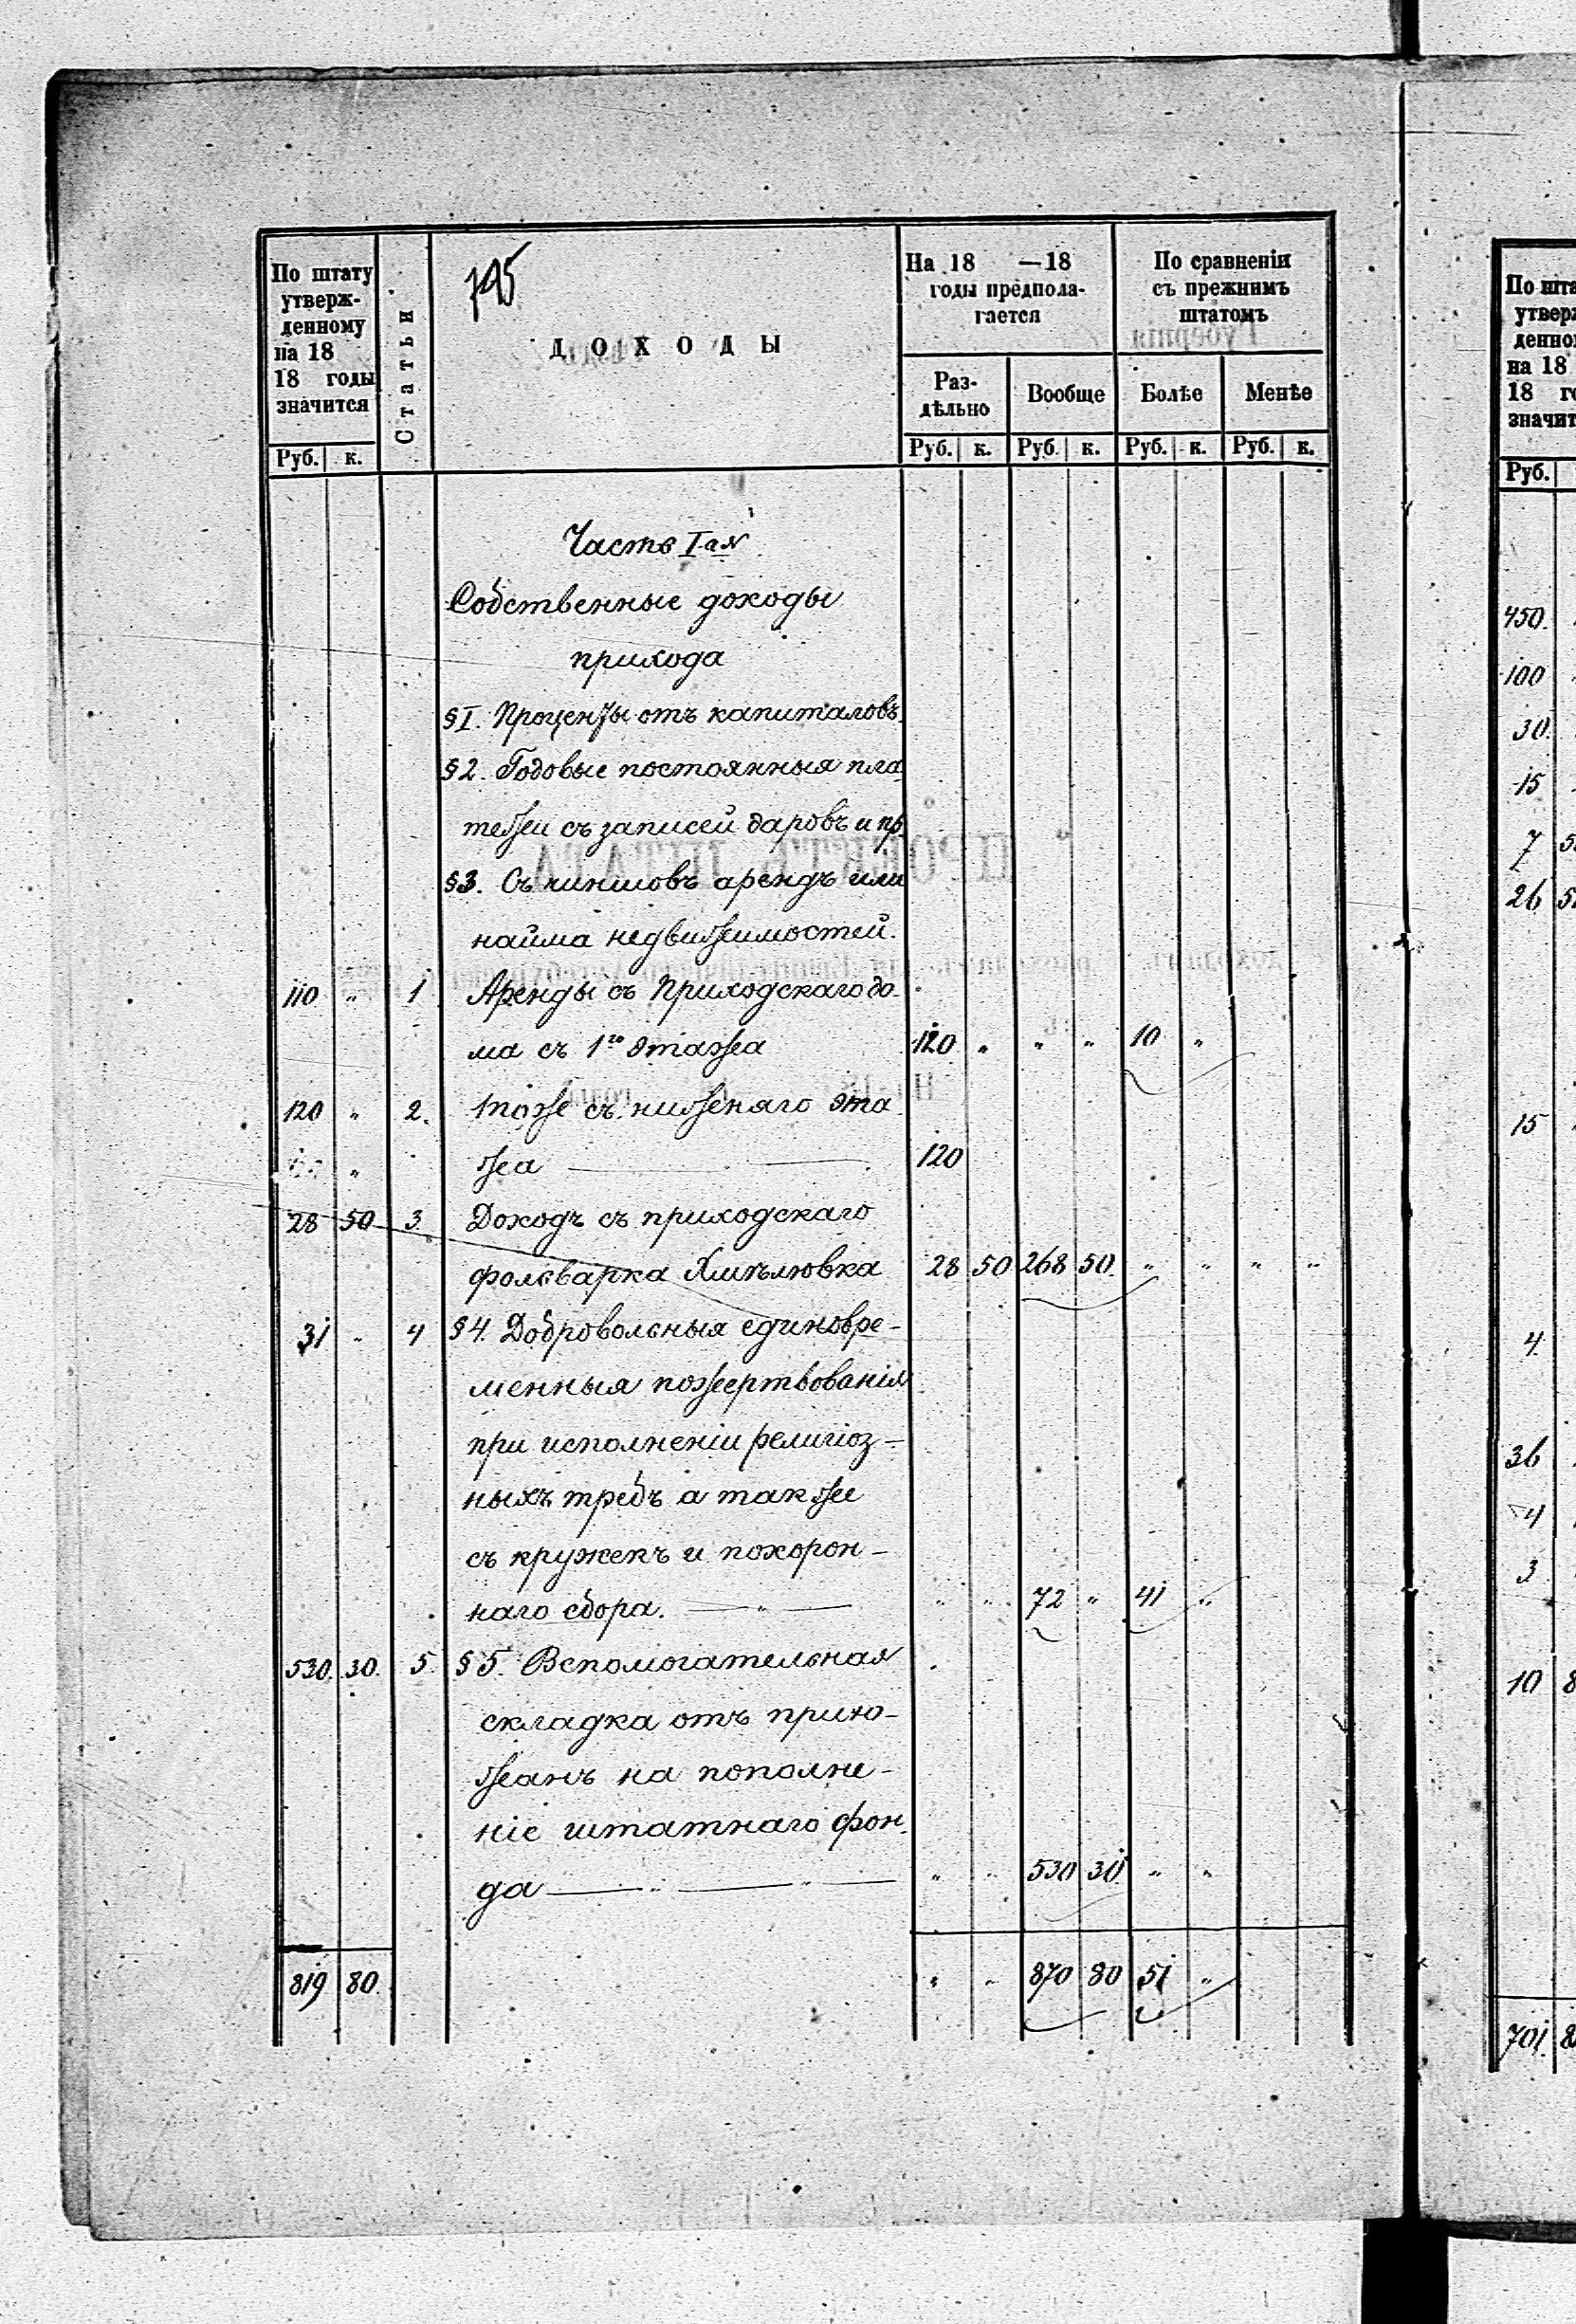 По штату утверж- денному на 18 18 годы значится
Статьи
795
ДОХОДЫ
На 18 —18 годы предпола- гается
По сравненіи съ прежнимъ штатомъ
Раз- дѣльно
Вообще
Болѣе
Менѣе
Руб. к.
Руб. к. Руб. к. Руб. к. Руб. к.
Часть I-ая
Собственные доходы
прихода
§ I. Проценты отъ капиталовъ.
§ 2. Годовые постоянныя пла
тежеи съ записей даровъ и пр.
§ 3. Съ чиншовъ арендъ или
найма недвижимостей.
110 „ 1 Аренды съ Приходскаго до-
ма съ 1го этажа 120 „ „ „ 10 „
120 „ 2. тоже съ нижняго эта
жа 120
28 50 3. Доходъ съ приходскаго
фольварка Хмѣлювка 28 50 268 50. „ „ „ „
31 „ 4 § 4. Добровольныя единовре-
менныя пожертвованія
при исполненіи религіоз-
ныхъ требъ а также
съ кружекъ и похорон-
наго сбора. „ „ 72 „ 41 „
530. 30. 5. § 5. Вспомогательная
складка отъ прихо-
жанъ на пополне-
ніе штатнаго фон.
да „ „ 530 30 „ „
819 80. „ „ 870 80 51 „
По шта
утверж
денно
на 18
18 го
значит
Руб.
450.
100
30.
15
7 5
26 5
15
4
36
4
3
10 8
701. 8